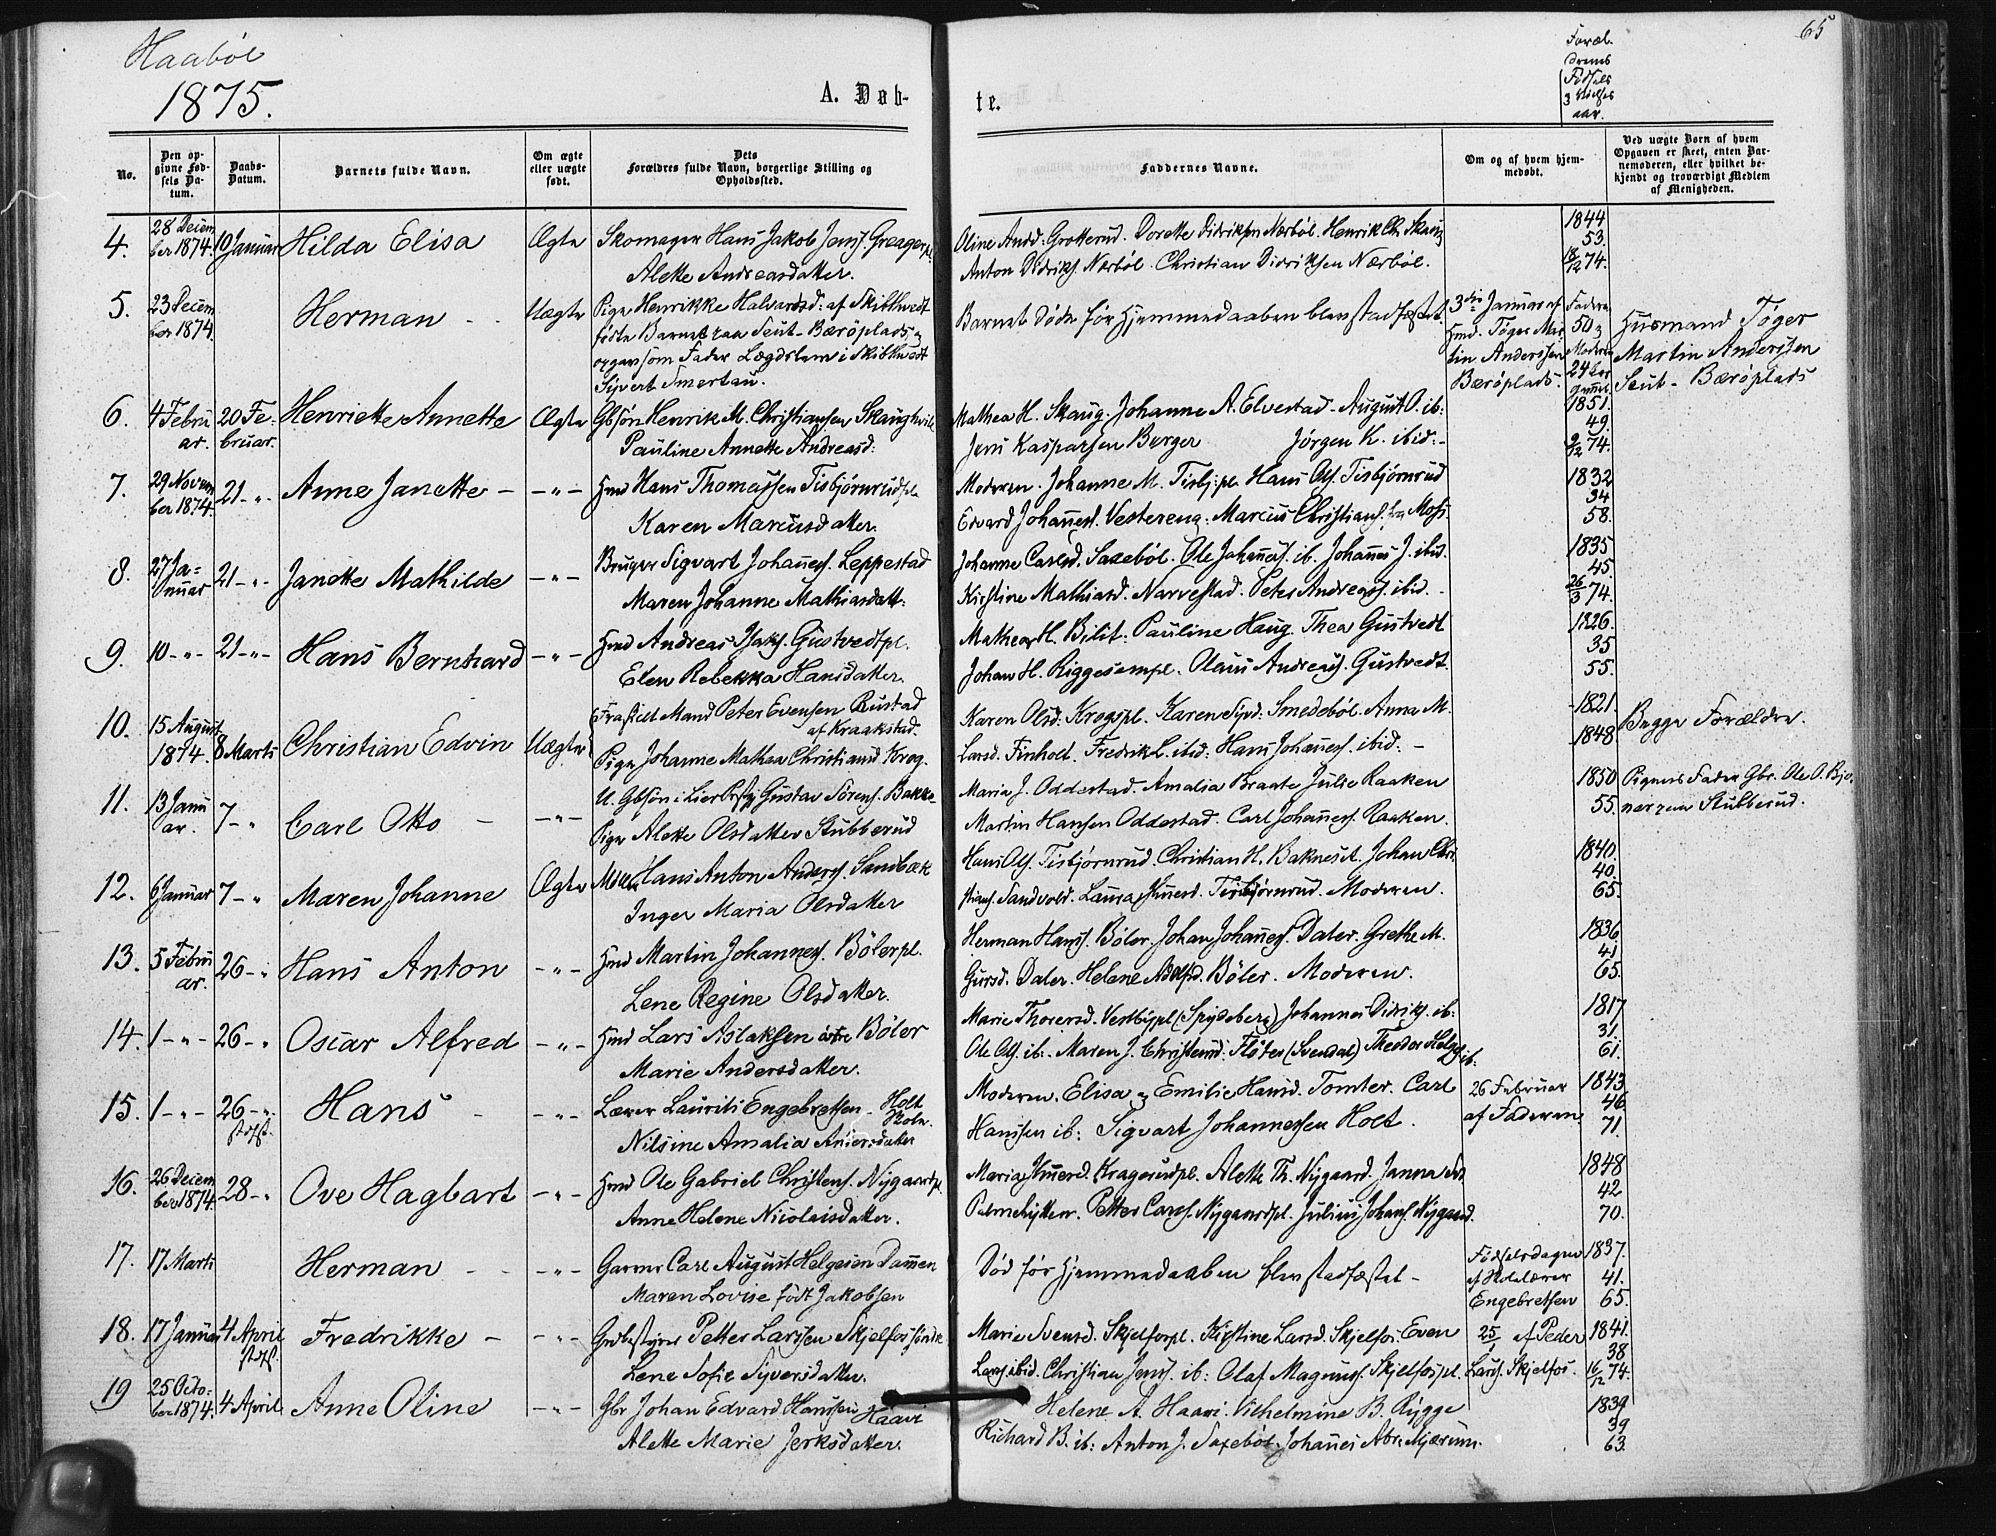 Haabøl
1875.
A. Døb-
te.
65
Foræl-
drenes
Fødsels
3 Vielses
aar.
No.
Den op-
givne Fød-
sels Da-
tum.
Daabs-
Datum.
Barnets fulde Navn.
Om ægte
eller uægte
født.
Dets
Forældres fulde Navn, borgerlige Stilling og
Opholdssted.
Faddernes Navne.
Om og af hvem hjem-
medøbt.
Ved uægte Børn af hvem
Opgaven er skeet, enten Bar-
nemoderen, eller hvilket be-
kjendt og troværdigt Medlem
af Menigheden.
4. 28 Decem
ber 1874. 10 Januar Hilda Elisa Ægte Skomager Hans Jakob Jens.
Alette Andreasdatter.
Oline Andd. Grotterud. Dorette Didriksen Nærbøl. Henrik Chr.
Anton Didriks. Nærbøl. Christian Didriksen Nærbøl.
1844
53.
18/12 74.
5. 23 Decem
ber 1874. Herman Uægte Pige Henrikke Halvorsd: af Skibthvedt
fødte Barnet paa Scut-Bærøplads, og
opgav som Fader Lægdslem i Skibthvedt
Syvert Smertau.
Barnet døde før Hjemmedaaben blev stadfæstet.
3die Januar af
Hmd. Tøger Mar-
tin Anderssen
Bærøplads.
Faderen
50 og
Moderen
24 Aar
gammel
Husmand Tøger
Martin Anderssen
Scut-Bærøplads
6. 4 Febru
ar. 20 Fe-
bruar. Henriette Annette Ægte Gbsøn Henrik M. Christiansen Skaughvile
Pauline Annette Andreasd:
Mathea H. Skaug. Johanne A. Elvestad. August O. ib:
Jens Kaspersen Berger Jørgen K. ibid:-
1851.
49.
9/12 74.
7. 29 Novem
ber 1874. 21-"- Anne Janette - -"- Hmd Hans Thomassen Tisbjørnrudpl.
Karen Marcusdatter.
Moderen. Johanne M. Tisbj:pl. Hans Ols. Tisbjørnrud
Edvard Johannes. Vestereng. Marcus Christians. fra Moss.
1832
34
58.
8. 27 Ja-
nuar 21-"- Janette Mathilde -"- Bruger Sigvart Johannes. Leppestad
Maren Johanne Mathiasdatt:
Johanne Carlsd. Saxebøl. Ole Johannes. ib. Johannes J. ibid.
Kirstine Mathiasd. Narvestad. Peter Andreass. ibid.
1835
45.
26/3 74.
9. 10-"- 21-"- Hans Bernhard -"- Hmd Andreas Isaks. Gustvedtpl.
Elen Rebekka Hansdatter.
Mathea H. Bilit: Pauline Haug. Thea Gustvedt
Johan H. Riggesempl. Olaus Andreas. Gustvedt.
1826.
35
55.
10. 15 August
1874. 8 Marts Christian Edvin Uægte Fraskilt Mand Peter Evensen Rustad
af Kraakstad.
Pige Johanne Mathea Christiansd Krog.
Karen Olsd: Krogspl. Karen Syvd: Smedebøl. Anna M.
Larsd. Finholt. Fredrik L. ibid: Hans Johannes. ibid: -
1821.
1848
Begge Forældre.
11. 13 Janu
ar. 7-" Carl Otto -"- U. Gbsøn i Lier Gustav Sørens. Bakke
Pige Alette Olsdatter Stubberud
Maria J. Oddestad. Amalia Braate Julie Raaken
Martin Hansen Oddestad. Carl Johannes. Raaken.
1850
55.
Pigens Fader Gbr. Ole O. Bjø-
nerren Stubberud.
12. 6 Januar 7-" Maren Johanne Ægte Møller Hans Anton Anders. Sandbæk
Inger Maria Olsdatter
Hans Ols. Tisbjørnrud. Christian H. Bakneset. Johan Chri-
stians. Sandvold. Laura Tisbjørnrud. Moderen.
1840.
40.
65.
13. 5 Febru
ar. 26-" Hans Anton -"- Hmd Martin Johannes. Bølerpl.
Lene Regine Olsdatter.
Herman Hans. Bøler. Johan Johannes. Daler. Grethe M.
Gursd. Daler. Helene Adolfsd. Bøler. Moderen.
1836
41
65.
14. 1-"- 26-" Oscar Alfred -"- Hmd Lars Aslaksen østre Bøler
Marie Andersdatter.
Marie Thoresd. Vestbypl (Spydeberg) Johannes Didriks. ib:
Ole Ols. ib: Maren J. Christensd: Fløter (Svendal) Theodor Helges. ib:
1817
31.
61.
15. 1-"- 26-"-
stadf. Hans - -"- Lærer Laurits Engebretsen Holt
Skole.
Nilsine Amalia Andersdatter
Moderen. Elisa og Emilie Hansd. Tomter. Carl
Hanssen ib: Sigvart Johannessen Holt.
26 Februar
af Faderen
1843
46.
71.
16. 26 Decem
ber 1874. 28-" Ove Hagbart -"- Hmd Ole Gabriel Christens. Nygaardpl.
Anne Helene Nicolaisdatter.
Maria Kragerudpl. Alette Th. Nygaard. Janna
Palmehytten. Petter Carls. Nygaardpl. Julius Johans. Nygaard.
1848
42
70.
17. 17 Marts Herman - -"- Garver Carl August Helgesen Dammen
Maren Lovise født Jakobsen
Død før Hjemmedaaben blev stadfæstet -
Fødselsdagen
af Skolelærer
Engebretsen
1837.
41.
65.
18. 17 Januar 4 April
stadf. Fredrikke - -"- Grubestyrer Petter Larssen Skjelfos søndre
Lene Sofie Syversdatter.
Marie Svensd. Skjelfospl. Kirstine Larsd. Skjelfos. Even
Lars. ibid. Christian Jens. ib: Olaf Magnus. Skjelfospl.
25/1 af Peder
Lars. Skjelfos.
1841.
38
16/12 74.
19 25 Octo-
ber 1874. 4 April Anne Oline -"- Gbr Johan Edvard Hanssen Haavi
Alette Marie Jerksdatter.
Helene A. Haavi. Vilhelmine B. Rygge
Richard B. ib: Anton J. Saxebøl. Johannes Abr. Mjærum.
1839
39
63.